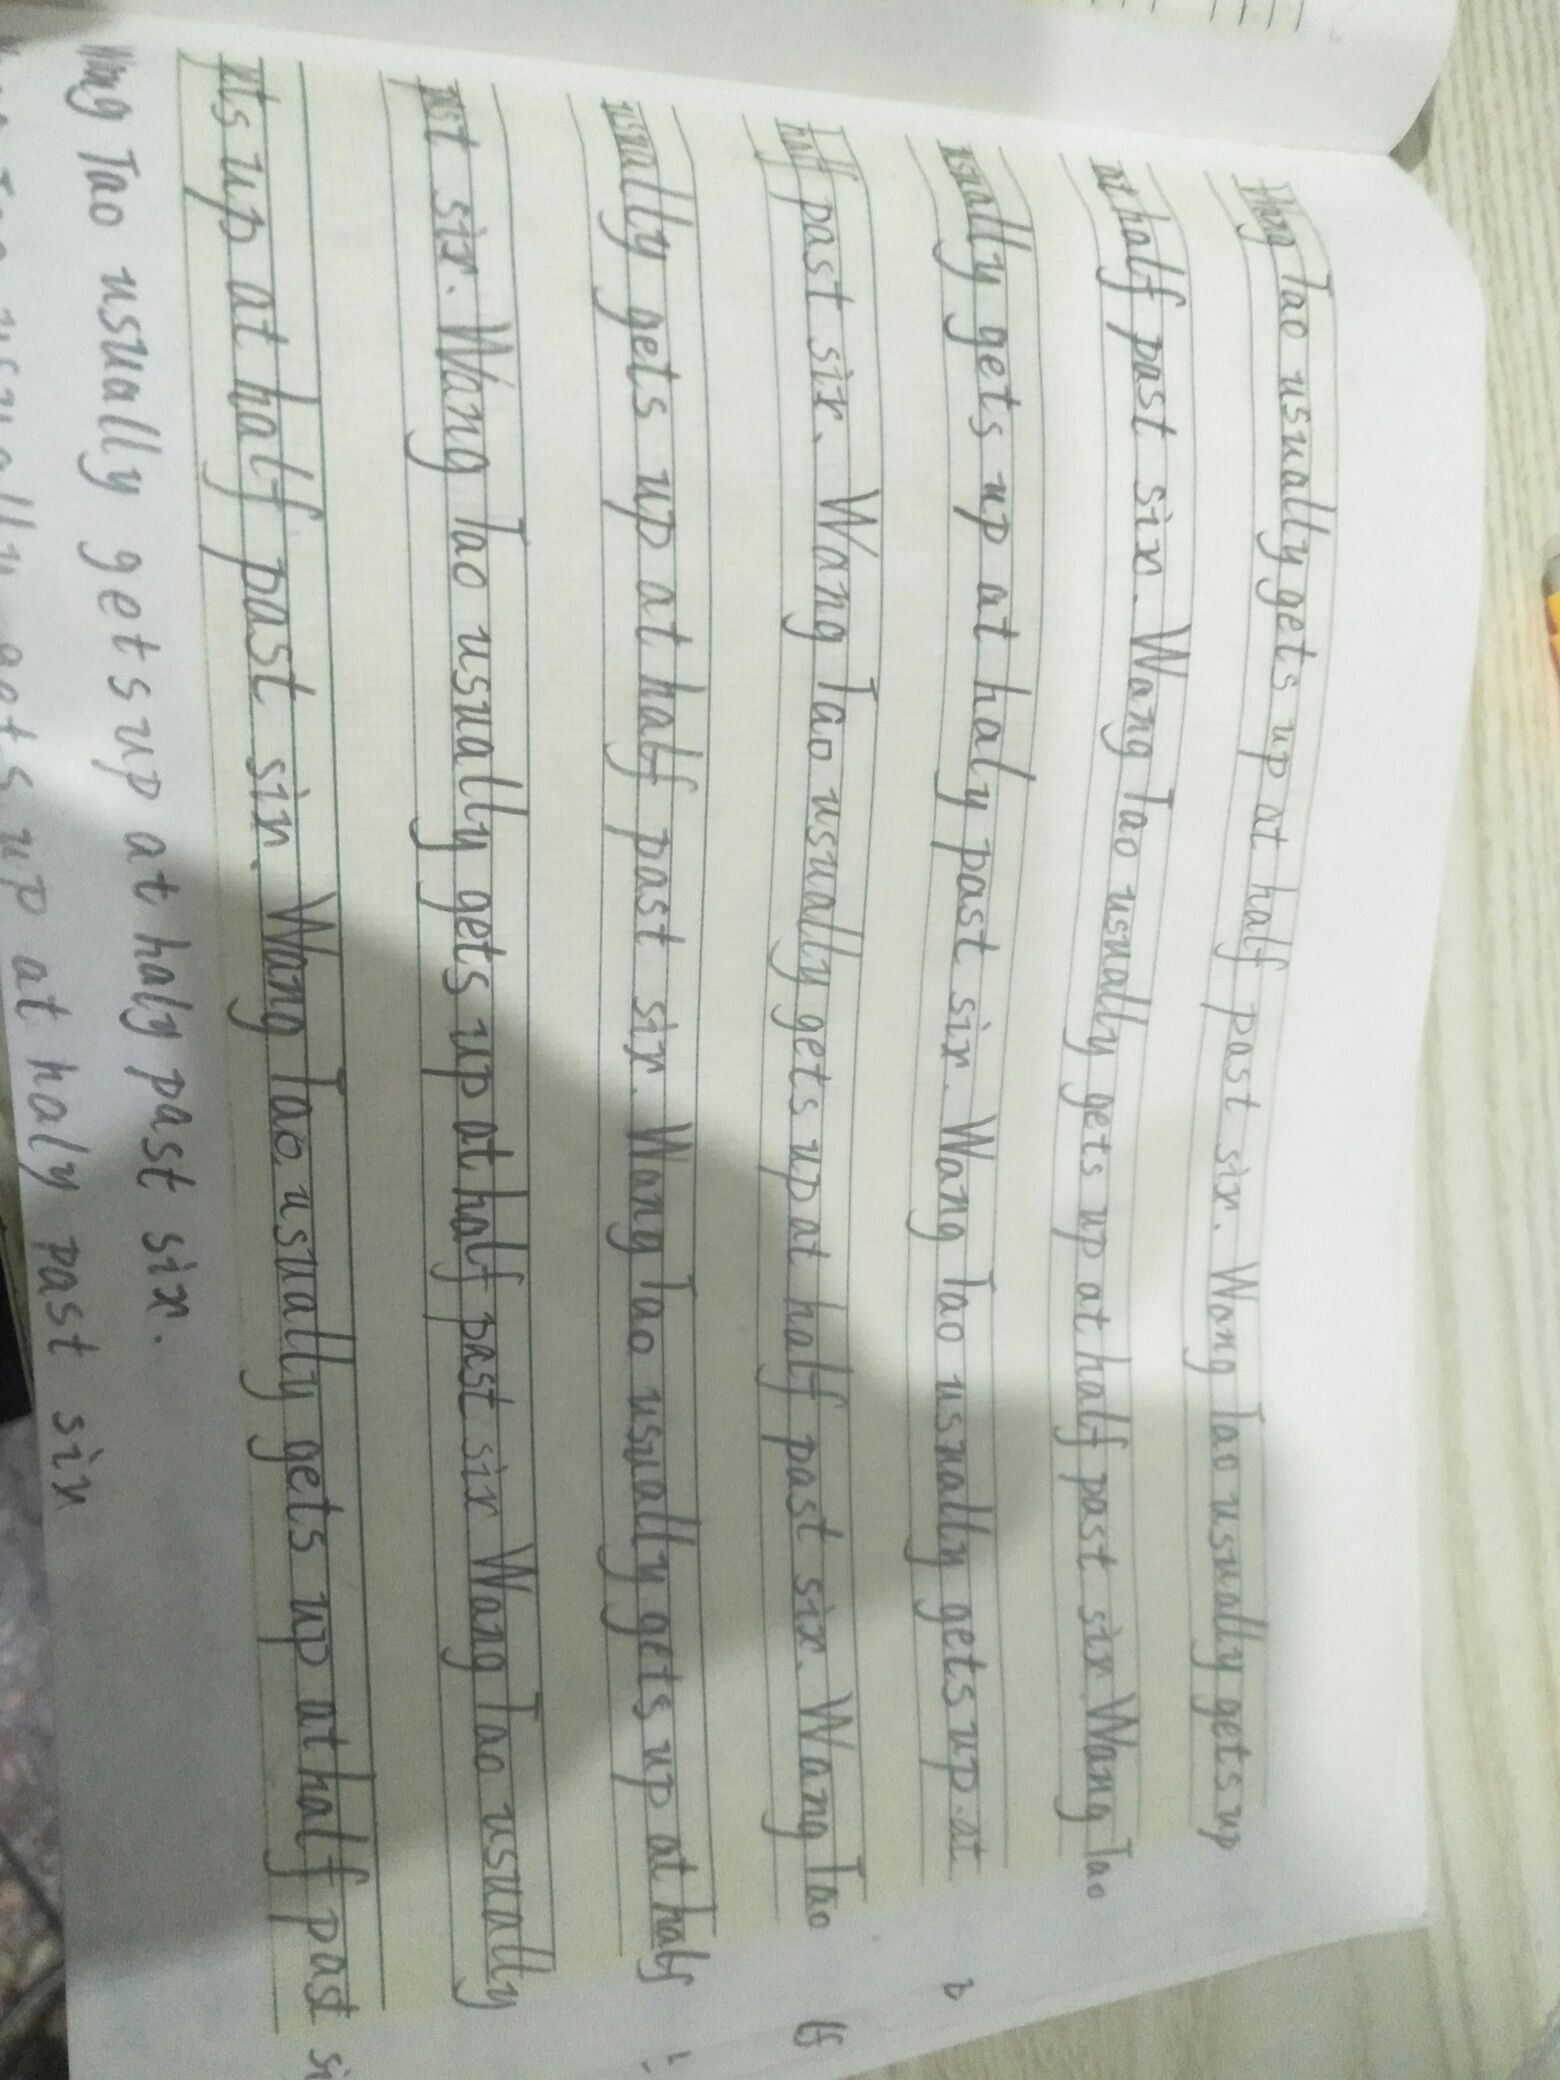 Wang Tao usually gets up at half past six. Wang Tao usually gets up
at half past six. Wang Tao usually gets up at half past six Wang Tao
usually gets up at haly past six. Wang Tao usually gets up at
half past six. Wang Tao usually gets up at half past six. Wang Tao
usually gets up at half past six. Wang Tao usually gets up at half
past six. Wang Tao usually gets up at half past six Wang Tao usually
gets up at half past six. Wang Tao usually gets up at half past si
Wang Tao usually gets up at haly past six.
Tao usually gets up at haly past six